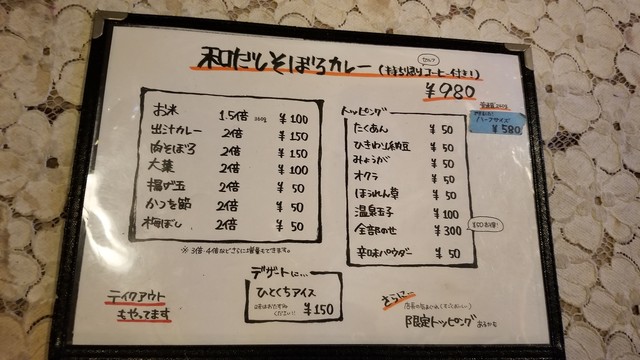 セルフ
和だしそぼろカレー (持ち帰りコーヒー付き!)
¥980
ハーフサイズ
¥580
お米 1.5倍 360g ¥100
出汁カレー 2倍 ¥150
肉そぼろ 2倍 ¥150
大葉 2倍 ¥100
揚げ玉 2倍 ¥50
かつを節 2倍 ¥50
梅ぼし 2倍 ¥50
※ 3倍・4倍などさらに増量もできます。
トッピング
たくあん ¥50
ひきわり納豆 ¥50
みょうが ¥50
オクラ ¥50
ほうれん草 ¥50
温泉玉子 ¥100
全部のせ ¥300
¥50お得!
辛味パウダー ¥50
デザートに…
ひとくちアイス
味はおたずねください! ¥150
テイクアウト
もやってます
さらに…
限定トッピングあるかも